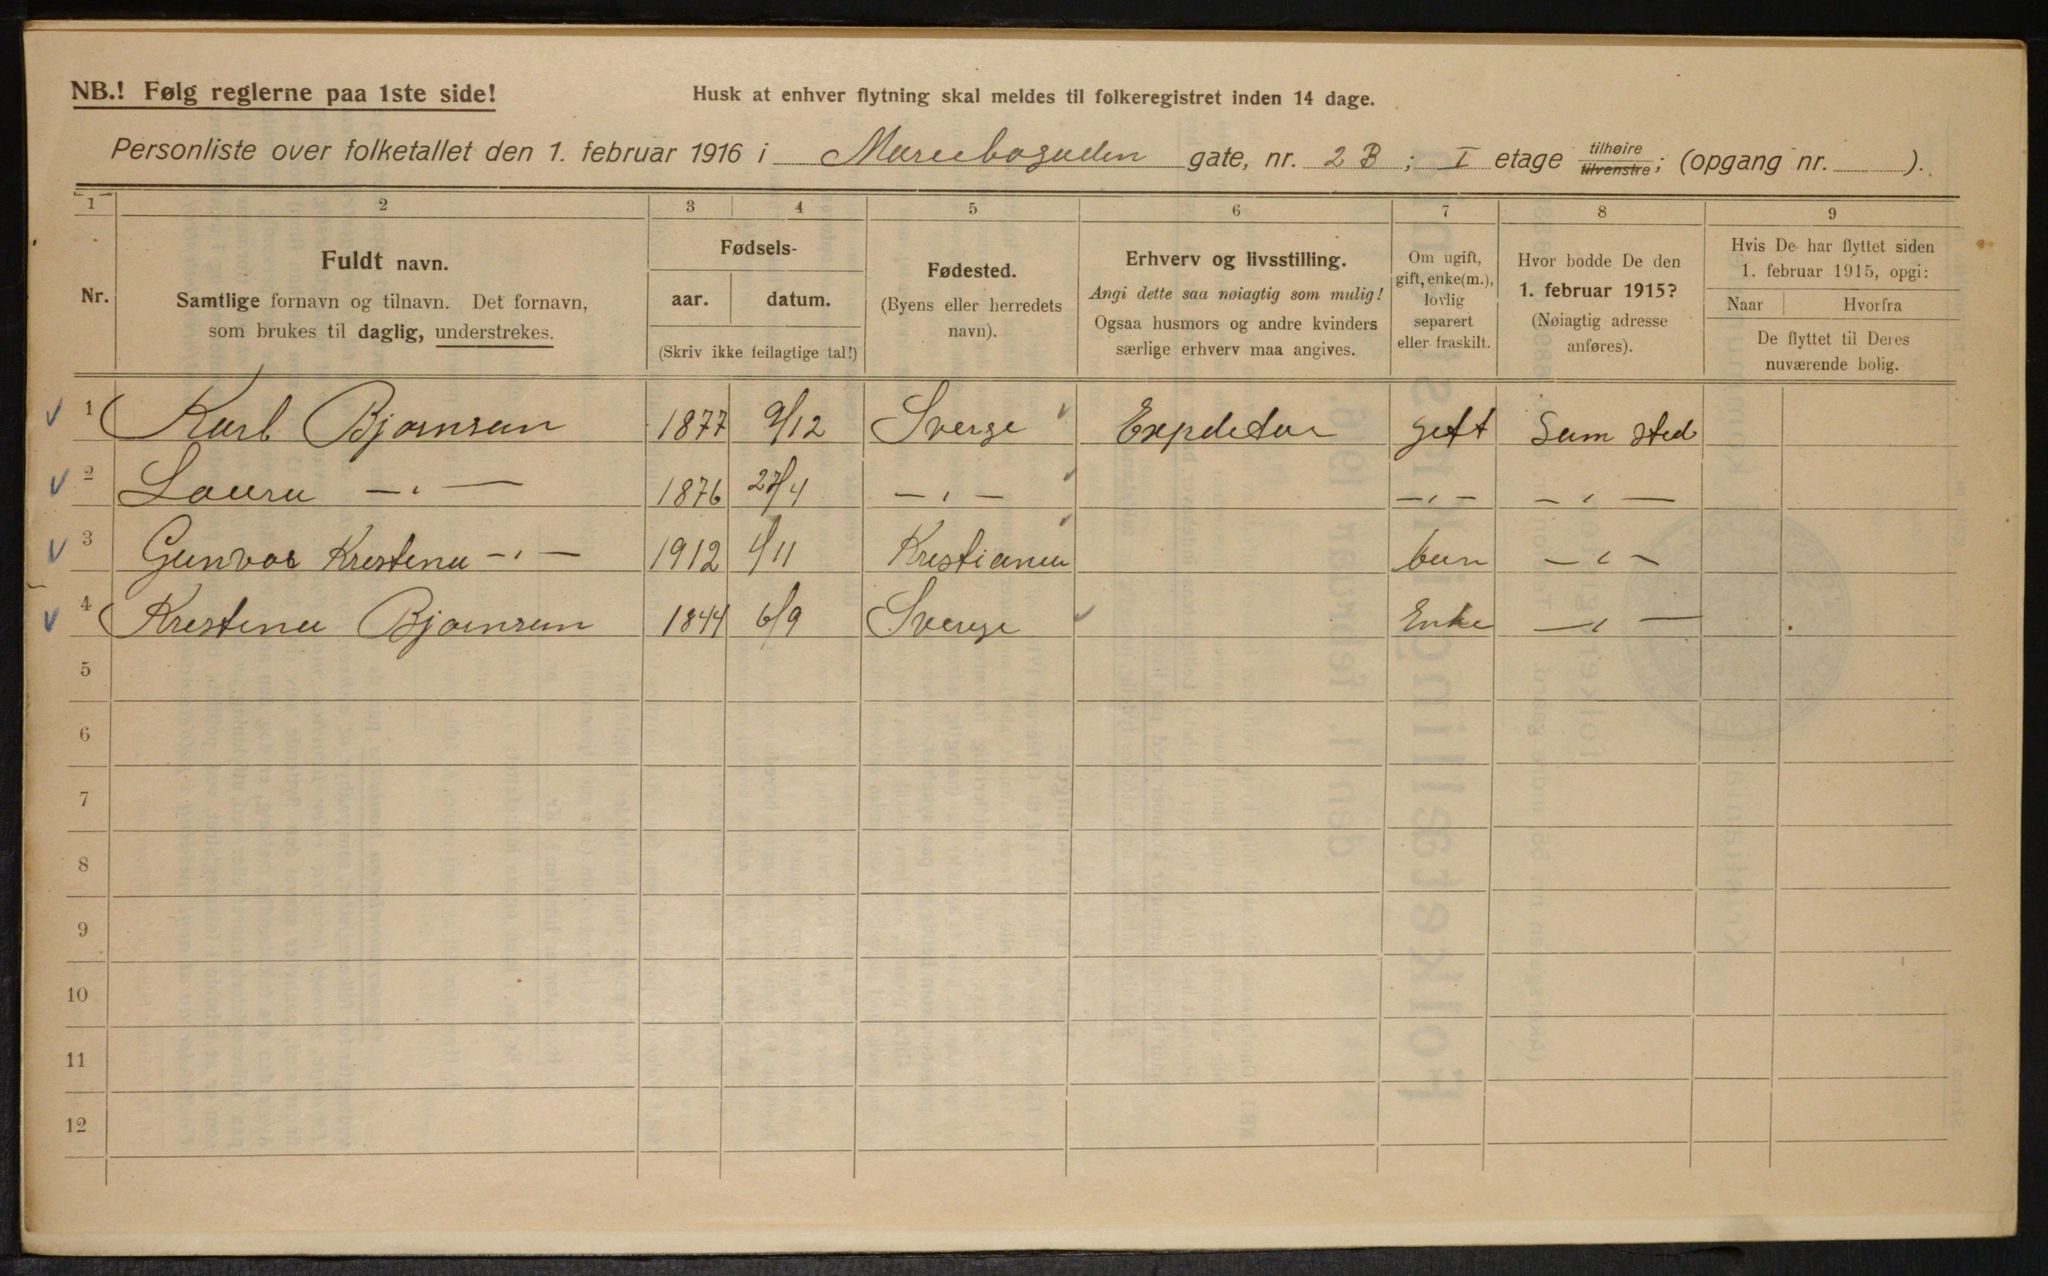 NB.! Følg reglerne paa 1ste side!
Husk at enhver flytning skal meldes til folkeregistret inden 14 dage.
Personliste over folketallet den 1. februar 1916 i Marebogaden gate, nr. 2 B; I etage tilhøire tilvenstre; (opgang nr. ).
1 2 3 4 5 6 7 8 9
Nr.
Fuldt navn.
Samtlige fornavn og tilnavn. Det fornavn,
som brukes til daglig, understrekes.
Fødsels-
aar. datum.
(Skriv ikke feilagtige tal!)
Fødested.
(Byens eller herredets
navn).
Erhverv og livsstilling.
Angi dette saa nøiagtig som mulig!
Ogsaa husmors og andre kvinders
særlige erhverv maa angives.
Om ugift,
gift, enke(m.),
lovlig
separert
eller fraskilt.
Hvor bodde De den
1. februar 1915?
(Nøiagtig adresse
anføres).
Hvis De har flyttet siden
1. februar 1915, opgi:
Naar Hvorfra
De flyttet til Deres
nuværende bolig.
1 Karl Bjørnsen 1877 9/12 Sverge Expditør gift Sam sted
2 Laura —„— 1876 27/4 —„— —„— —„—
3 Gunvor Krestena —„— 1912 1/11 Krestiania barn —„—
4 Krestena Bjørnsen 1844 6/9 Sverge Enke —„—
5
6
7
8
9
10
11
12